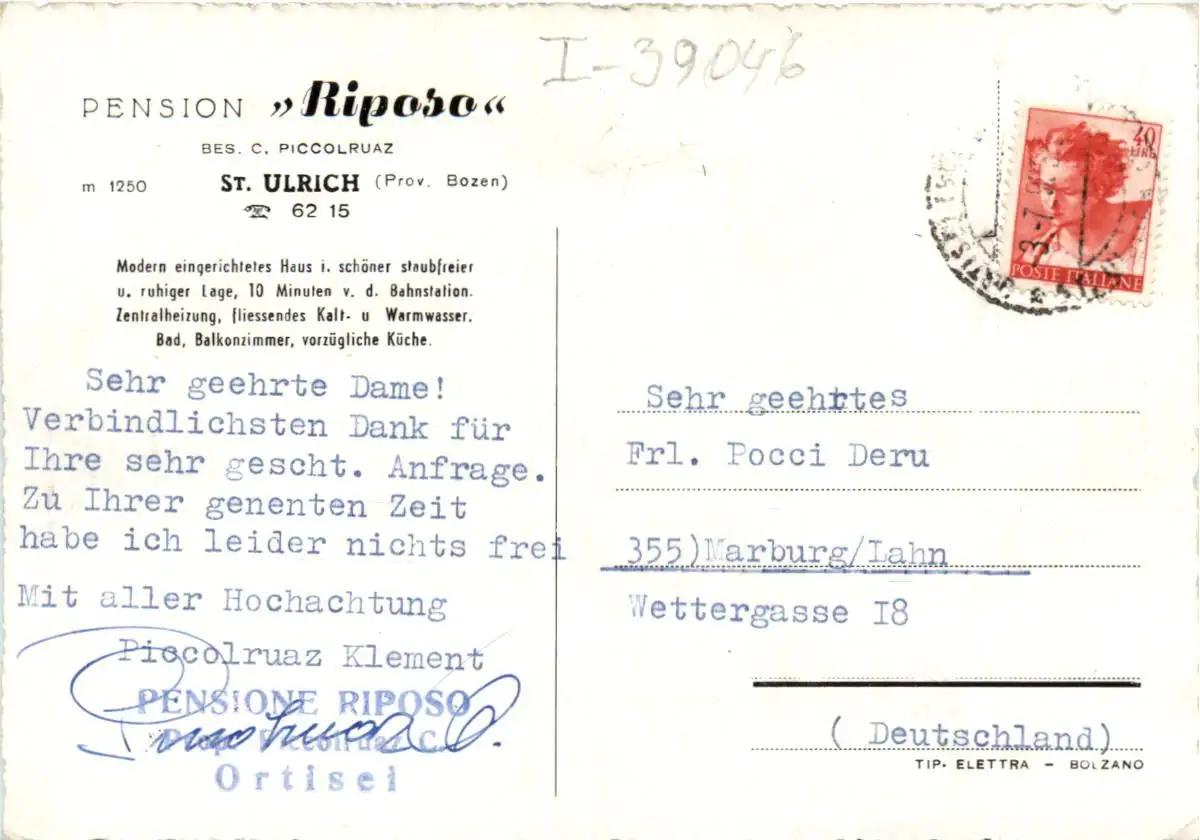 I-39046
PENSION »Riposo«
BES. C. PICCOLRUAZ
m 1250 ST. ULRICH (Prov. Bozen)
☎ 62 15
Modern eingerichtetes Haus i. schöner staubfreier
u. ruhiger Lage, 10 Minuten v. d. Bahnstation.
Zentralheizung, fliessendes Kalt- u Warmwasser.
Bad, Balkonzimmer, vorzügliche Küche.
Sehr geehrte Dame!
Verbindlichsten Dank für
Ihre sehr gescht. Anfrage.
Zu Ihrer genenten Zeit
habe ich leider nichts frei
Mit aller Hochachtung
Piccolruaz Klement
PENSIONE RIPOSO
Prop. Piccolruaz C.
Ortisei
40
LIRE
POSTE ITALIANE
Sehr geehrtes
Frl. Pocci Deru
355)Marburg/Lahn
Wettergasse I8
( Deutschland)
TIP. ELETTRA - BOLZANO